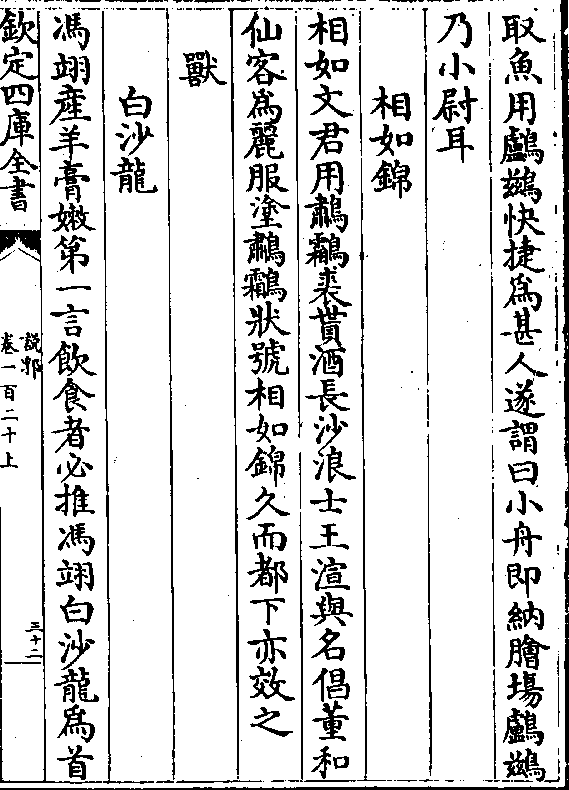 取魚用鸕鷀快捷為甚人遂謂曰小舟即納膾塲鸕鷀
乃小尉耳
相如錦
相如文君用鷫鸘裘貰酒長沙浪士王渲與名倡董和
仙客為麗服塗鷫鸘狀號相如錦久而都下亦效之
獸
白沙龍
馮翊產羊膏嫩第一言飲食者必推馮翊白沙龍為首
欽定四庫全書
說郛
卷一百二十上
三十二